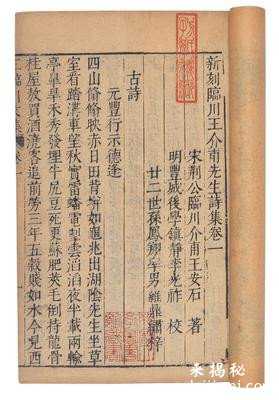 新刻臨川王介甫先生詩集卷一
宋荊公臨川介甫王安石 著
明豐城後學鎮靜李光祚 校
廿二世孫鳳翔
男維鼎
繡梓
古詩
元豐行示德逢
四山翛翛映赤日田背坼如龜兆出湖陰先生坐草
室看踏溝車望秋實雷蟠電掣雲滔滔夜半載雨輸
亭皋旱禾秀發埋牛尻豆死更蘇肥莢毛倒持龍骨
挂屋敖買酒澆客追前勞三年五穀賤如水今見西
卷一
未揭秘